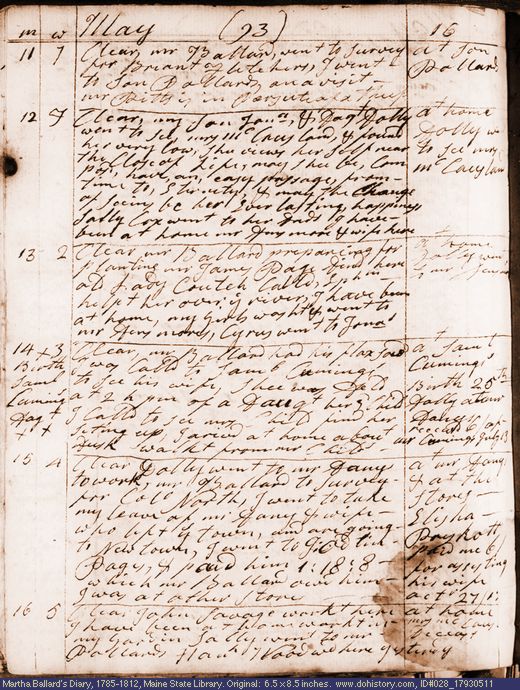 m w May (93) 16
11 7 Clear, mr Ballard, went to Survey at Son
for Briant I went Ballards
to Son Ballards on a visit
mr
12 7 Clear, my Son Jonn, & Dagt Dolly at home
went to See mrs mcCausland, & found Dolly w
her very low, She views her Self near to See mrs
the Close of life, may She be, Com mcCausland
pos, have an, easy passage from
time to Eternity, & may the Change
of being be her Ever lasting happiness
Sally Cox went to her Dads I have
been at home mr Dinsmore & wife here
13 2 Clear, mr Ballard prepareing for at home
planting mr James Page here
old Lady Coutch Calld, Ephm
helpt her over ye river, I have been
at home, my girls washt, went to
mr Densmores, Cyrus went to Jonas
14 + 3 Clear, mr Ballard had his flax at Saml
Birth I was Calld to Saml Cumings Cumings
Saml to See his wife, Shee was Birth 25th
Cuming at 2 h pm of a Daugt her Child Dolly at mr
Dagt I Calld to See mrs Child find her Daws
+ + Seting up, I arivd at home about receivd 6/ of
Dusk walkt from mr Childs mr Cumings July 13
15 4 Clear Dolly went to mr Daws at mr Daws
to work, mr Ballard to Survey & at the
for Colo North, I went to take Stores
my leave of mr Daws & wife Elisha
who left ye town, and are going Prskott
to Newtown, I went to paid me 6/
Page, & paid him 1:18:8 for assisting
which mr Ballard owed him his wife
I was at other Stores
16 5 Clear, John Savage workt here at home
I have been at home workt in
my gardin Sally went to mr
Pollards,
Martha Ballard's Diary, 1785-1812, Maine State Library. Original: 6.5 x 8.5 inches. www.dohistory.com, ID#028_17930511